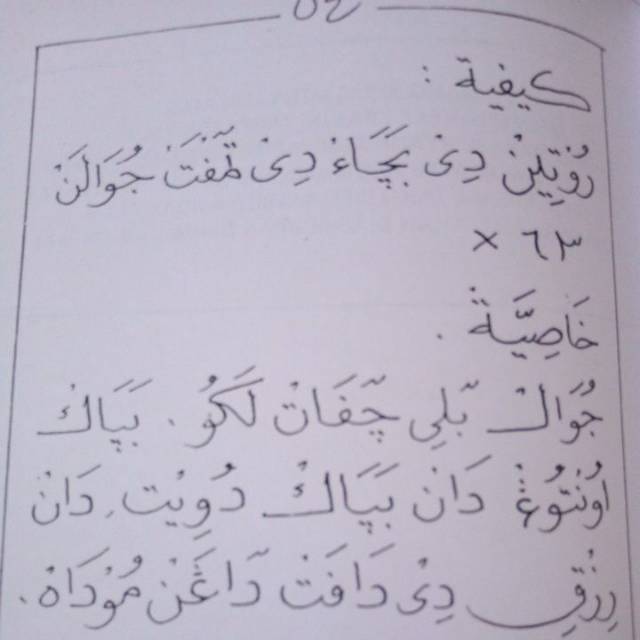 كيفية :
رُوْتِيْلَنْ دِىْ بَچَاءْ دِىْ تَمْفَتْ جُوَالَنْ
٦٣ ×
خَاصِيَّةْ .
جُوَالْ بَلِي چَفَاتْ لَكُوْ. بَپَاكْ
اُوْنْتُوْڠْ دَانْ بَپَاكْ دُوِيْتْ، دَانْ
رِزْقِ دِىْ دَافَتْ دَاڠَنْ مُوْدَاهْ.